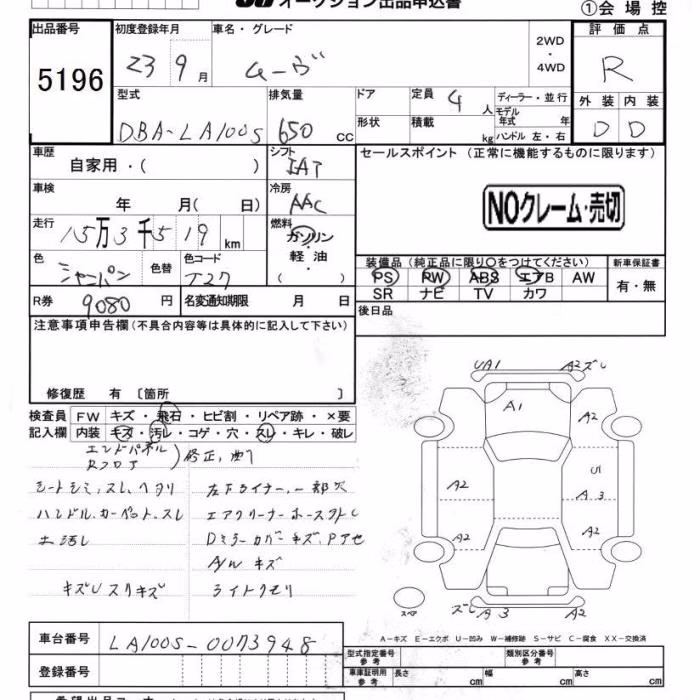 オークション出品申込書
①会場控
出品番号 初度登録年月 車名・グレード 2WD・4WD 評価点
5196 23 9月 ムーヴ R
型式 排気量 ドア 定員 4人 ディーラー・並行 外装 内装
DBA-LA100S 650 cc 形状 積載 kg モデル年式 年 ハンドル 左・右 D D
車歴 シフト セールスポイント (正常に機能するものに限ります)
自家用・( ) IAT
車検 冷房 NOクレーム・売切
年 月( 日) AAC
走行 燃料
15万3千519km ガソリン・軽油・( )
色 色替 色コード 装備品(純正品に限り○をつけてください) 新車保証書
シャンパン T27 PS RW ABS エアB AW 有・無
R券 9080円 名変通知期限 月 日 SR ナビ TV カワ
注意事項申告欄(不具合内容等は具体的に記入して下さい) 後日品
修復歴 有 〔箇所 〕
検査員 FW キズ・飛石・ヒビ割・リペア跡・×要
記入欄 内装 キズ・汚レ・コゲ・穴・スレ・キレ・破レ
エンドパネル
Rフロア )修正、曲り
シートシミ、スレ、ヘタリ 左下ライナー、一部欠
ハンドル、カーペット、スレ エアクリーナーホース外レ
土汚レ Dミラーカバーキズ、Pアセ
A/W キズ
キズUスリキズ ライトクモリ
UA1 A2ズレ
A1 A2
U1
A2 A3
A2 A2
スペア ズレ A3 A2
A-キズ E-エクボ U-凹み W-補修跡 S-サビ C-腐食 XX-交換済
車台番号 LA100S-0073948
型式指定番号 参考 類別区分番号 参考
登録番号 車庫証明用 参考 長さ cm 幅 cm 高さ cm